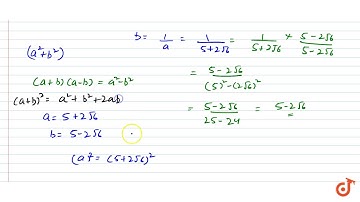 (a²+b²)
(a+b)(a-b) = a²-b²
(a+b)² = a²+b²+2ab
a = 5+2√6
b = 5-2√6
(a)² = (5+2√6)²
b = 1/a = 1/(5+2√6) = 1/(5+2√6) × (5-2√6)/(5-2√6)
= (5-2√6)/((5)²-(2√6)²)
= (5-2√6)/(25-24) = 5-2√6
doubtnut